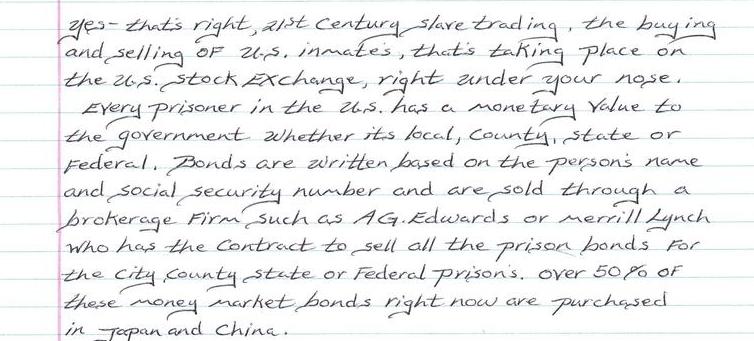 yes- that's right, 21st Century slave trading, the buying
and selling OF U.S. inmates, that's taking place on
the U.S. Stock EXchange, right under your nose.
Every prisoner in the U.S. has a monetary Value to
the government whether its local, County, state or
Federal. Bonds are written based on the person's name
and social security number and are sold through a
brokerage Firm such as AG.Edwards or Merrill Lynch
who has the Contract to sell all the prison bonds For
the City County state or Federal prison's. over 50% OF
these money market bonds right now are purchased
in Japan and China.